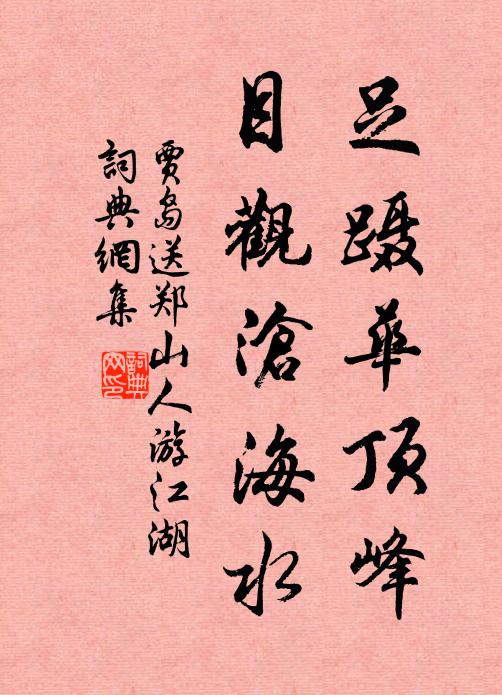 足蹑華顶峰
目觀滄海水
贾岛送郑山人游江湖
詞典網集
詞典網印